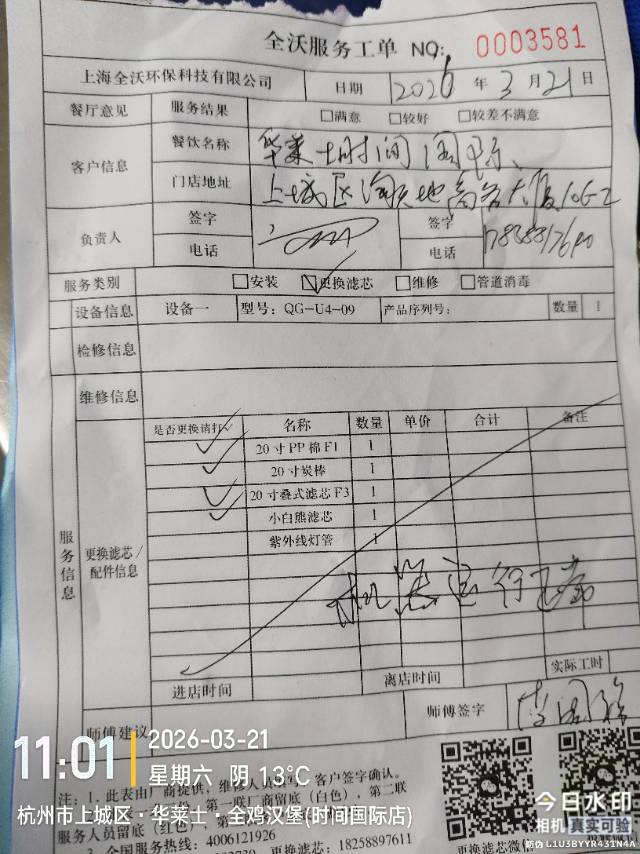 全沃服务工单 NO: 0003581
上海全沃环保科技有限公司 日期 2026 年 3 月 21 日
餐厅意见 服务结果 □满意 □较好 □较差不满意
客户信息 餐饮名称 华莱士时间国际
门店地址 上城区
负责人 签字 签字
电话 电话
服务类别 □安装 ☑更换滤芯 □维修 □管道消毒
设备信息 设备一 型号: QG-U4-09 产品序列号: 数量 1
检修信息
维修信息
服务信息
更换滤芯/配件信息
是否更换请打✓ 名称 数量 单价 合计 备注
✓ 20寸PP棉F1 1
✓ 20寸炭棒 1
✓ 20寸叠式滤芯F3 1
✓ 小白熊滤芯 1
紫外线灯管 1
机器运行正常
进店时间 离店时间 实际工时
师傅建议 师傅签字
11:01 2026-03-21
星期六 阴 13℃
杭州市上城区·华莱士·全鸡汉堡(时间国际店)
注: 1. 此表由厂商提供, 维修人员 客户签字确认。
第一联厂商留底(白色), 第二联
服务人员留底(红色),
全国服务热线: 4006121926
更换滤芯: 18258897611
今日水印
相机 真实可验
防伪 L1U3BYYR43TN4A